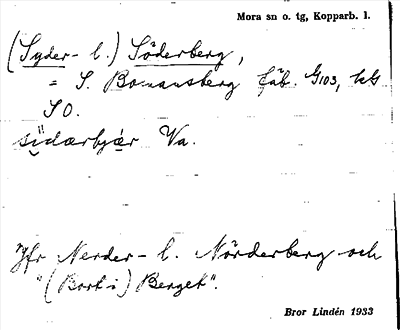 Mora sn o. tg, Kopparb. l.
(Syder- l.) Söderberg,
= S. Bomansberg fäb. G103, kG
SO.
südærbjær Va.
Jfr Nerder- l. Nörderberg och
"(Bort i) Berget".
Bror Lindén 1933